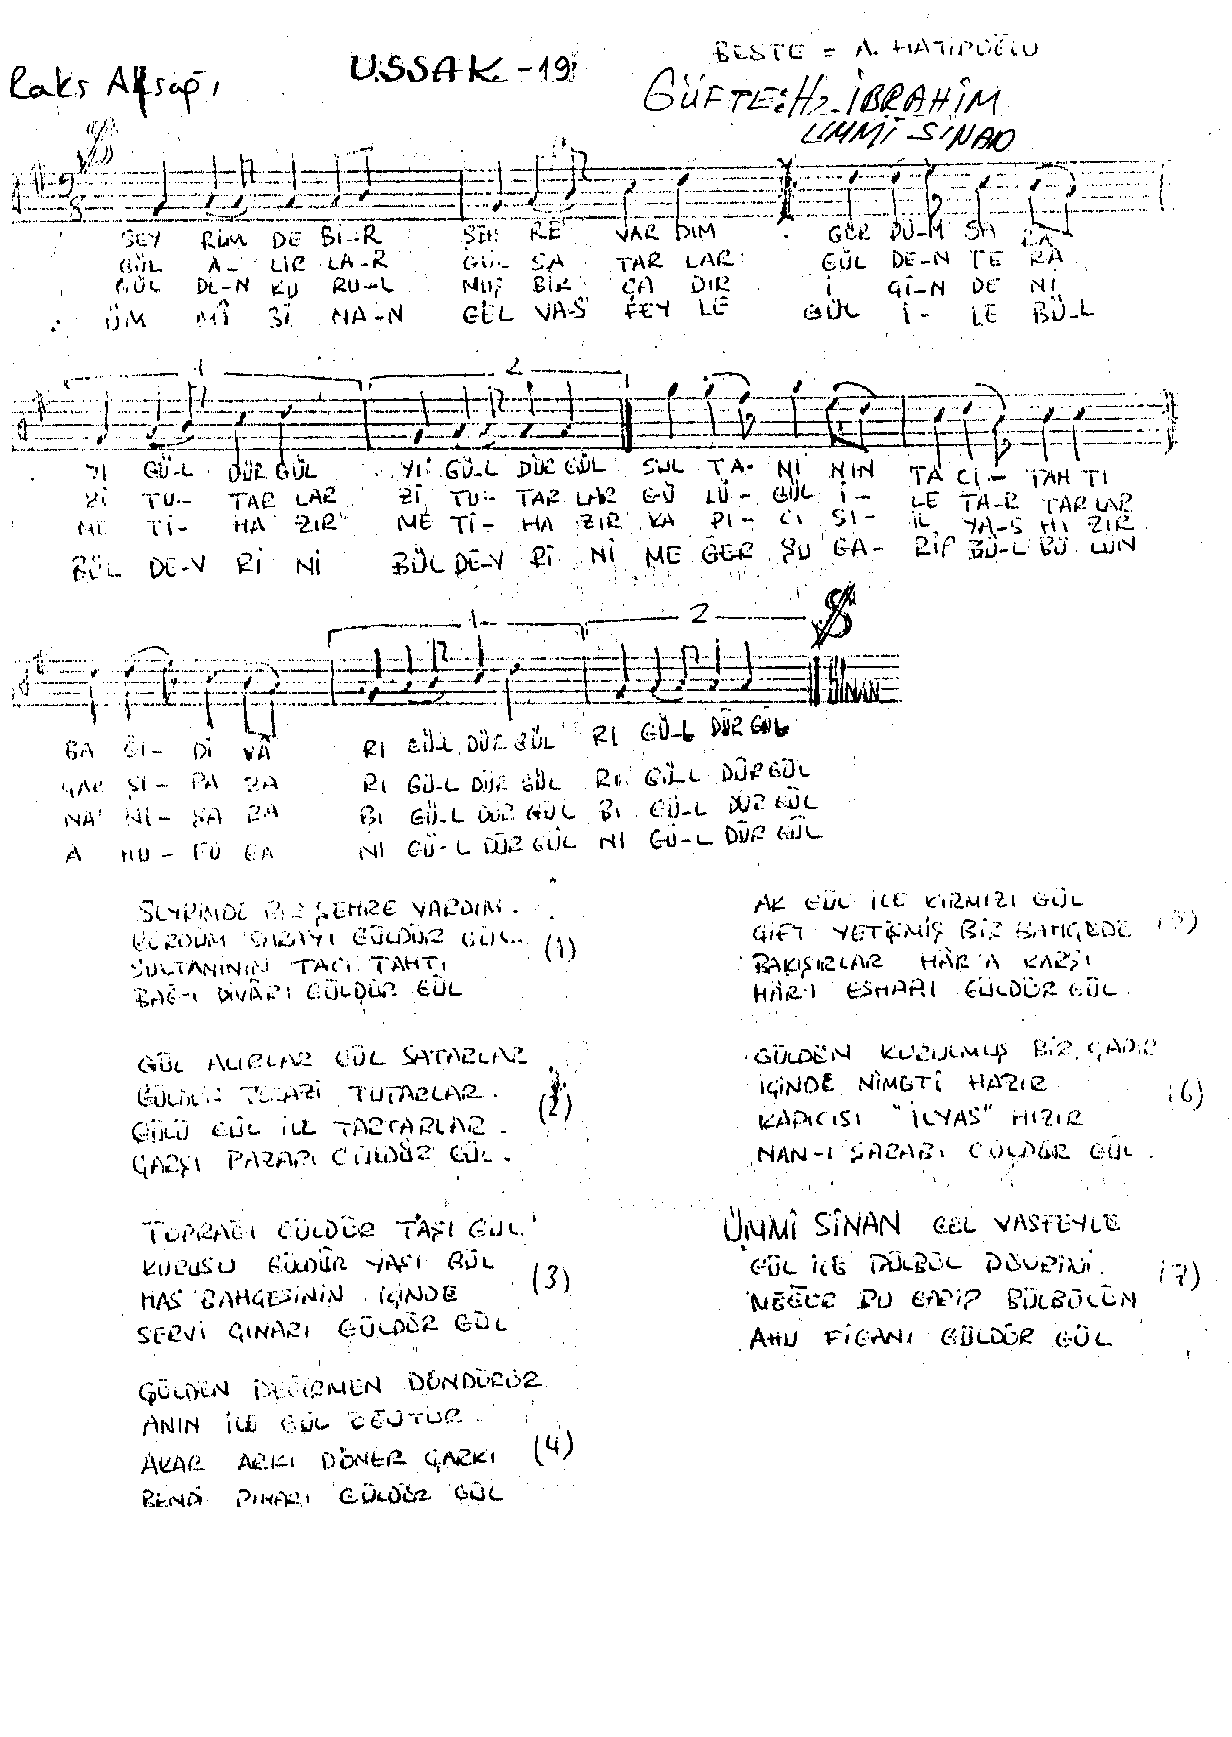 BESTE = A. HATİPOĞLU
Raks Aksağı
UŞSAK - 19
GÜFTE: Hz. İBRAHİM
ÜMMİ SİNAN
SEY RİM DE Bİ-R ŞEH RE VAR DIM GER DÜ-M SA RA
GÜL A- LIR LA-R GÜL SA TAR LAR GÜL DE-N TE RA
GÜL DE-N KU RU-L MUŞ BİR ÇA DIR İ Çİ-N DE Nİ
ÜM Mİ Sİ NA-N GEL VA-S FEY LE GÜL İ- LE BÜ-L
1 2
YI GÜ-L DÜR GÜL YI GÜ-L DÜR GÜL SUL TA- NI NIN TA CI- TAH TI
Zİ TU- TAR LAR Zİ TU- TAR LAR GÜ LÜ- GÜL İ- LE TA-R TAR LAR
ME Tİ- HA ZIR ME Tİ- HA ZIR KA PI- CI SI- İL YA-S HI ZIR
BÜL DE-V Rİ Nİ BÜL DE-V Rİ Nİ ME ĞER ŞU GA- RİP BÜ-L BÜ LÜN
1 2
SİNAN
BA Ğİ- Dİ VA RI GÜ-L DÜR GÜL RI GÜ-L DÜR GÜL
ÇAR ŞI- PA ZA RI GÜ-L DÜR GÜL RI GÜ-L DÜR GÜL
NA Nİ- ŞA RA BI GÜ-L DÜR GÜL BI GÜ-L DÜR GÜL
A HU- Fİ GA NI GÜ-L DÜR GÜL NI GÜ-L DÜR GÜL
SEYRİMDE BİR ŞEHRE VARDIM.
GÖRDÜM SARAYI GÜLDÜR GÜL. (1)
SULTANININ TACI TAHTI
BAĞ-I DİVÂRI GÜLDÜR GÜL
GÜL ALIRLAR GÜL SATARLAR
GÜLDEN TERAZİ TUTARLAR. (2)
GÜLÜ GÜL İLE TARTARLAR.
ÇARŞI PAZARI GÜLDÜR GÜL.
TOPRAĞI GÜLDÜR TAŞI GÜL
KURUSU GÜLDÜR YAŞI GÜL (3)
HAS BAHÇESİNİN İÇİNDE
SERVİ ÇINARI GÜLDÜR GÜL
GÜLDEN DEĞİRMEN DÖNDÜRÜR
ANIN İLE GÜL ÖĞÜTÜR
AKAR ARKI DÖNER ÇARKI (4)
BENDİ PINARI GÜLDÜR GÜL
AK GÜL İLE KIRMIZI GÜL
ÇİFT YETİŞMİŞ BİR BAHÇEDE (5)
BAKIŞIRLAR HÂR'A KARŞI
HÂR-I ESHARI GÜLDÜR GÜL.
GÜLDEN KURULMUŞ BİR ÇADIR
İÇİNDE NİMETİ HAZIR (6)
KAPICISI "İLYAS" HIZIR
NAN-I ŞARABI GÜLDÜR GÜL.
ÜMMİ SİNAN GEL VASFEYLE
GÜL İLE BÜLBÜL DEVRİNİ. (7)
MEĞER BU GARİP BÜLBÜLÜN
AHU FİGANI GÜLDÜR GÜL